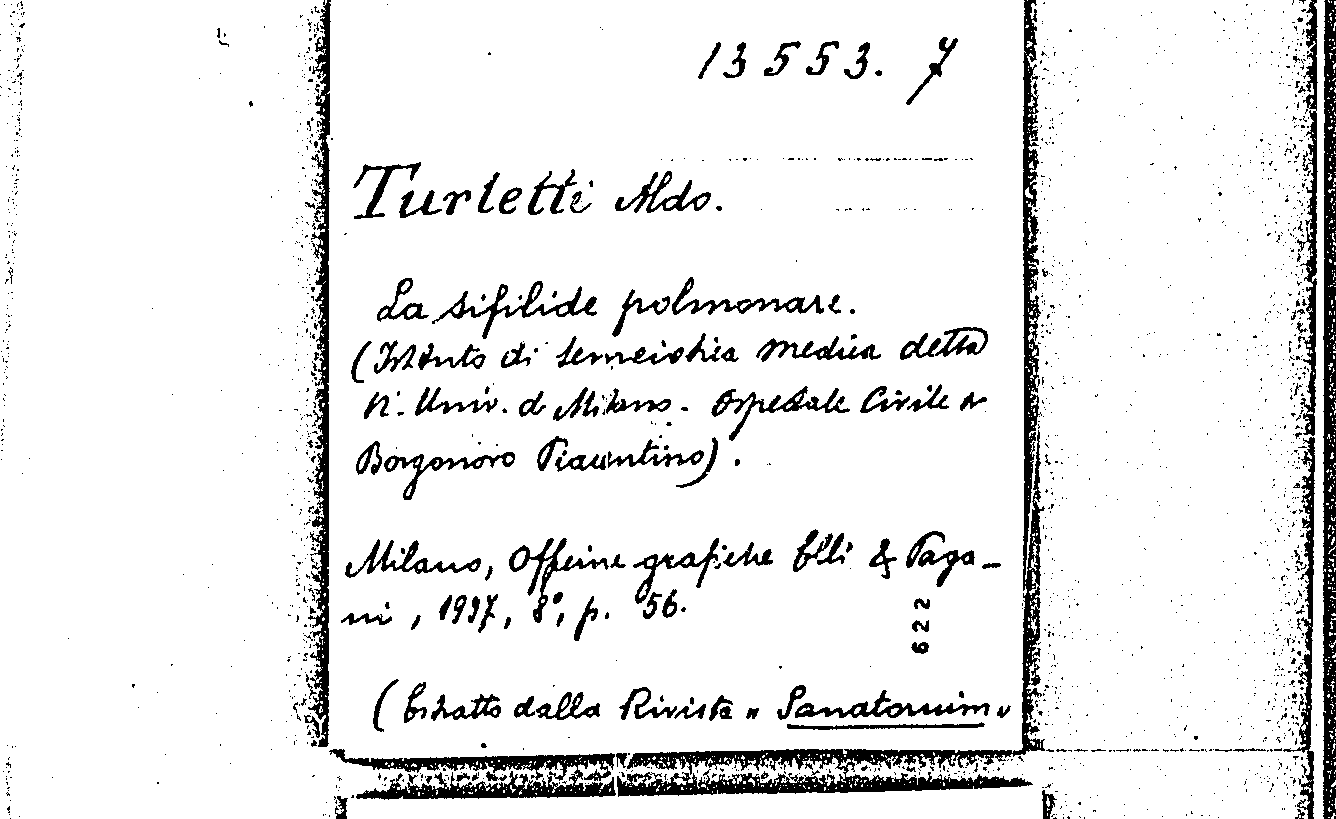 13553. 7
Turletti Aldo.
La sifilide polmonare.
(Istituto di Semeiotica medica della
R. Univ. di Milano. Ospedale Civile di
Borgonovo Piacentino).
Milano, Officine grafiche Elli & Paga-
ni, 1937, 8°, p. 56.
622
(Estratto dalla Rivista " Sanatorium "